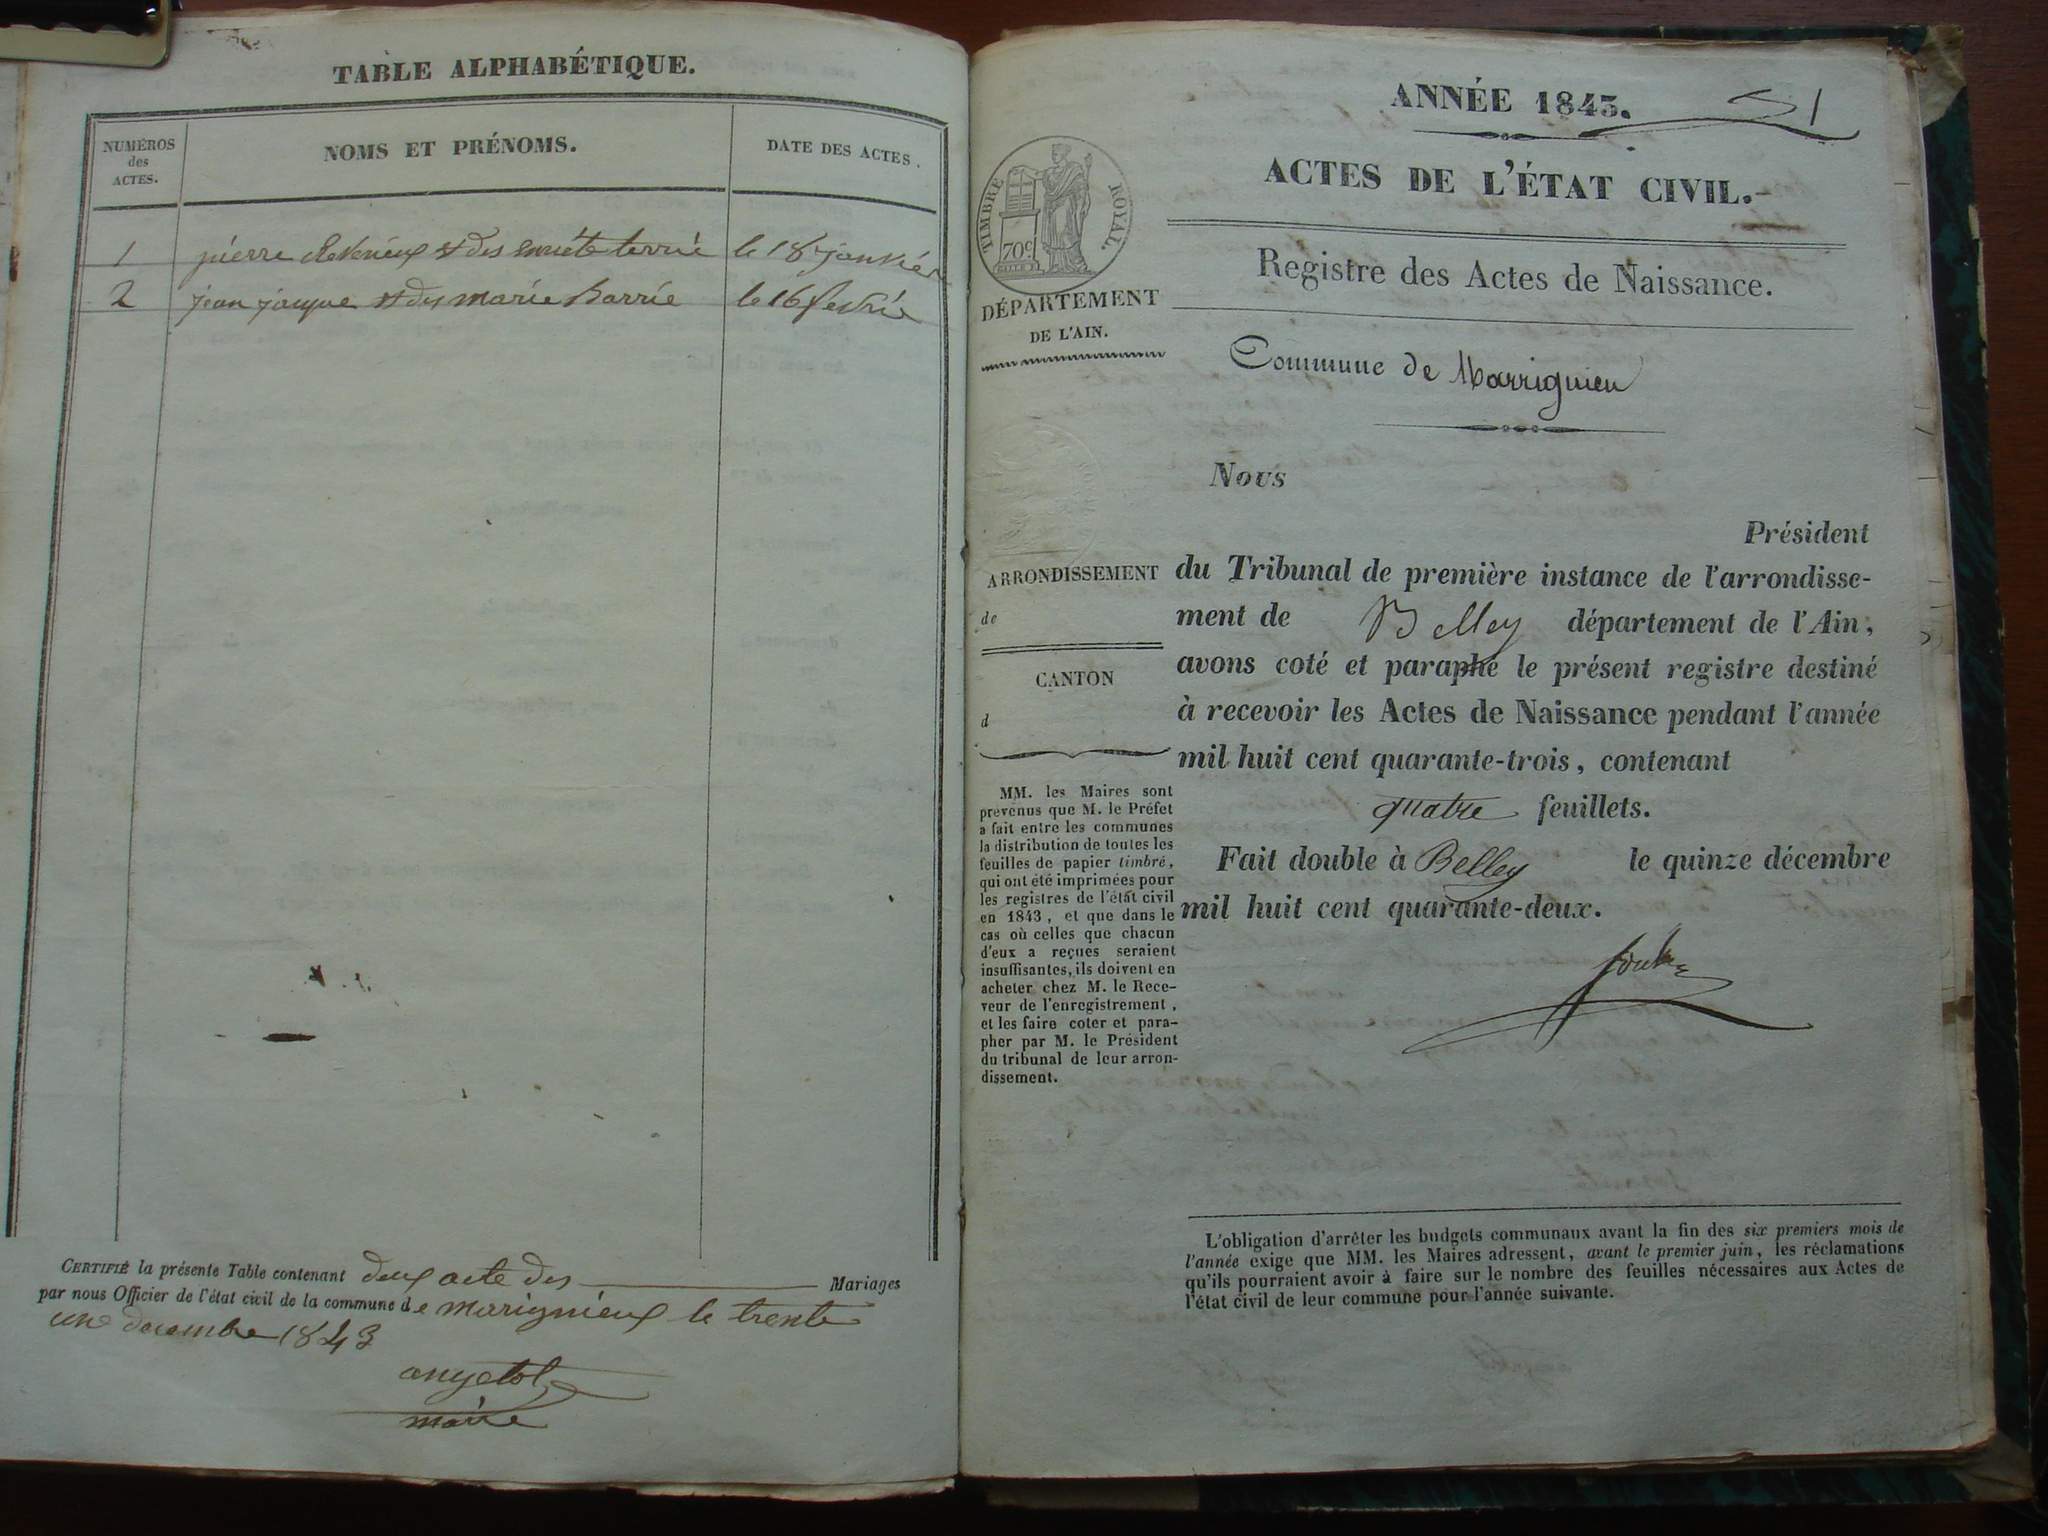 TABLE ALPHABÉTIQUE.
NUMÉROS
des
ACTES.
NOMS ET PRÉNOMS.
DATE DES ACTES.
1 pierre et des terrié le 18 janvier
2 jean jacque et des marie Barrie le 16 fevrié
CERTIFIÉ la présente Table contenant deux acte des Mariages
par nous Officier de l'état civil de la commune de marignieux le trente
une decembre 1843
angelot
maire
ANNÉE 1843. 1
ACTES DE L'ÉTAT CIVIL.
TIMBRE ROYAL.
70c
Registre des Actes de Naissance.
DÉPARTEMENT
DE L'AIN.
Commune de Marrignieu
Nous
Président
du Tribunal de première instance de l'arrondisse-
ment de Belley département de l'Ain,
avons coté et paraphé le présent registre destiné
à recevoir les Actes de Naissance pendant l'année
mil huit cent quarante-trois, contenant
quatre feuillets.
Fait double à Belley le quinze décembre
mil huit cent quarante-deux.
ARRONDISSEMENT
de
CANTON
d
MM. les Maires sont
prévenus que M. le Préfet
a fait entre les communes
la distribution de toutes les
feuilles de papier timbré,
qui ont été imprimées pour
les registres de l'état civil
en 1843, et que dans le
cas où celles que chacun
d'eux a reçues seraient
insuffisantes, ils doivent en
acheter chez M. le Rece-
veur de l'enregistrement,
et les faire coter et para-
pher par M. le Président
du tribunal de leur arron-
dissement.
L'obligation d'arrêter les budgets communaux avant la fin des six premiers mois de
l'année exige que MM. les Maires adressent, avant le premier juin, les réclamations
qu'ils pourraient avoir à faire sur le nombre des feuilles nécessaires aux Actes de
l'état civil de leur commune pour l'année suivante.